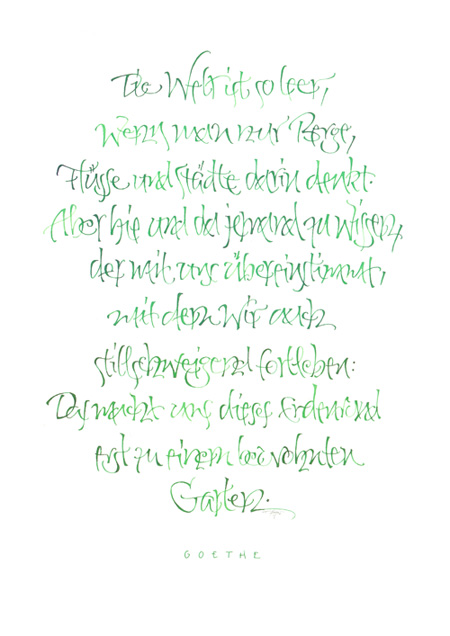 Die Welt ist so leer,
wenn man nur Berge,
Flüsse und Städte darin denkt.
Aber hie und da jemand zu wissen,
der mit uns übereinstimmt,
mit dem wir auch
stillschweigend fortleben:
Das macht uns dieses Erdenrund
erst zu einem bewohnten
Garten.
GOETHE